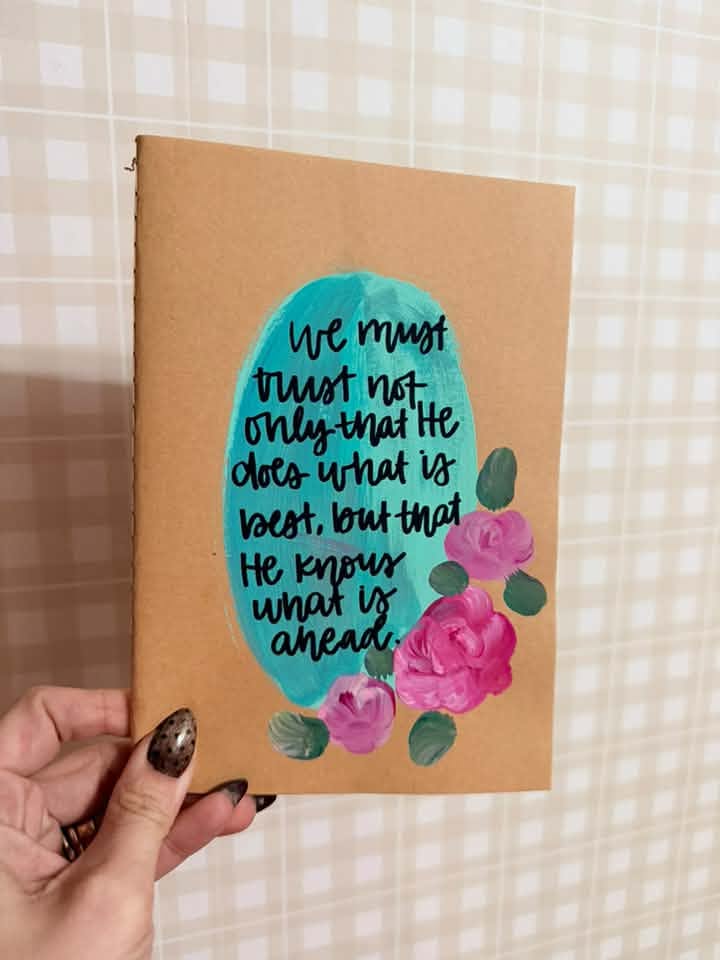 We must
trust not
only that He
does what is
best, but that
He knows
what is
ahead.